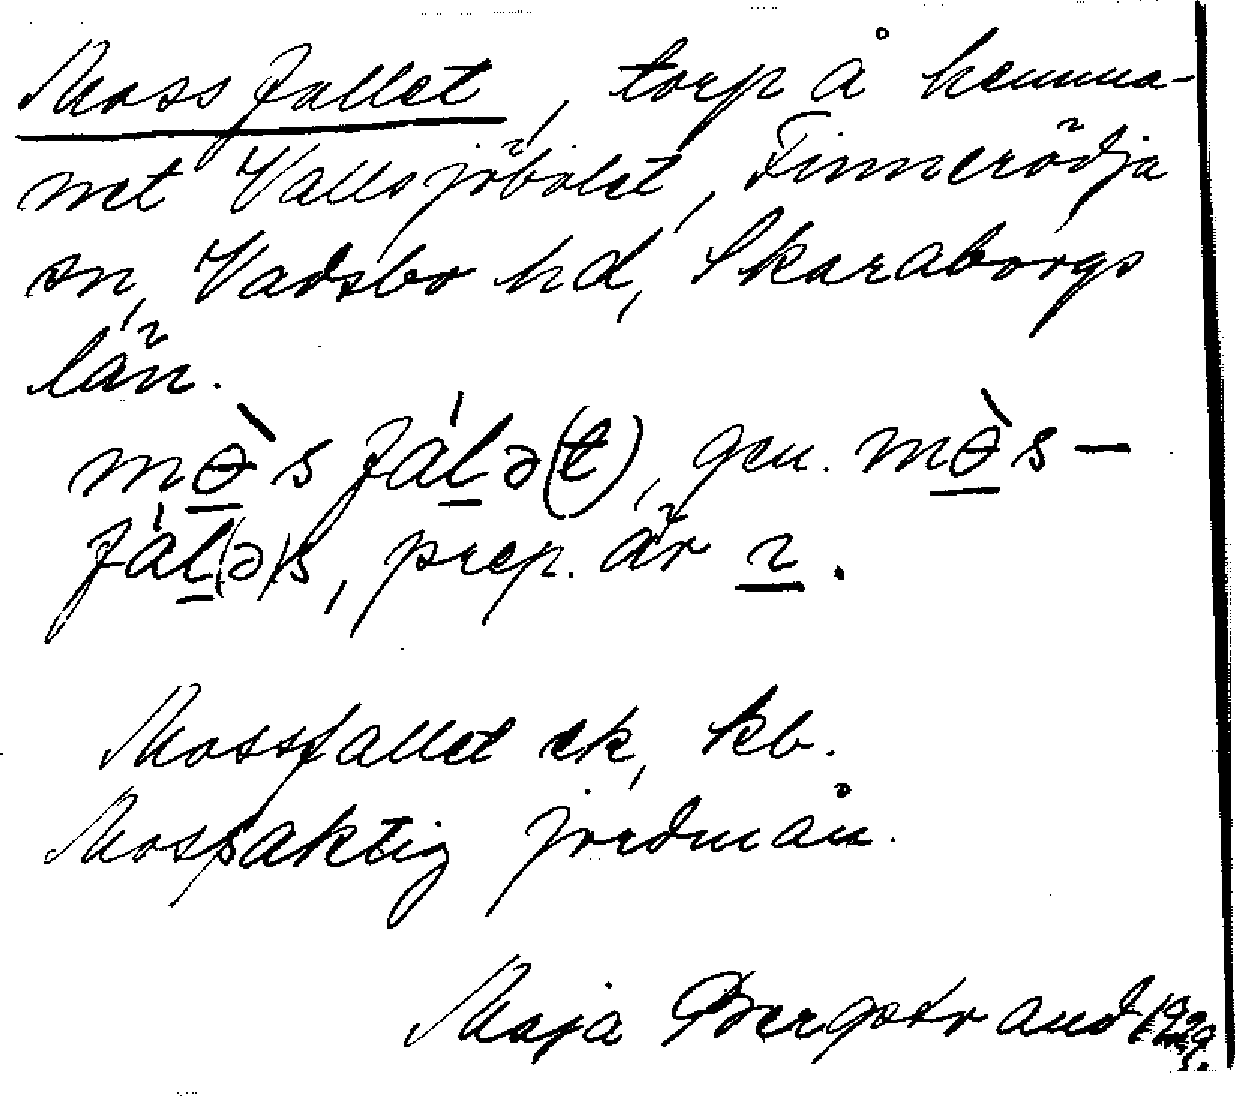 Mossfallet, torp å hemma-
net Vallsjöbolet, Finnerödja
sn, Vadsbo hd, Skaraborgs
län.
mɵ̀sfálə(t), gen. mɵ̀s-
fál(ə)s, prep. är ɩ.
Mossfallet ek, kb.
Mossaktig jordmån.
Maja Bergstrand